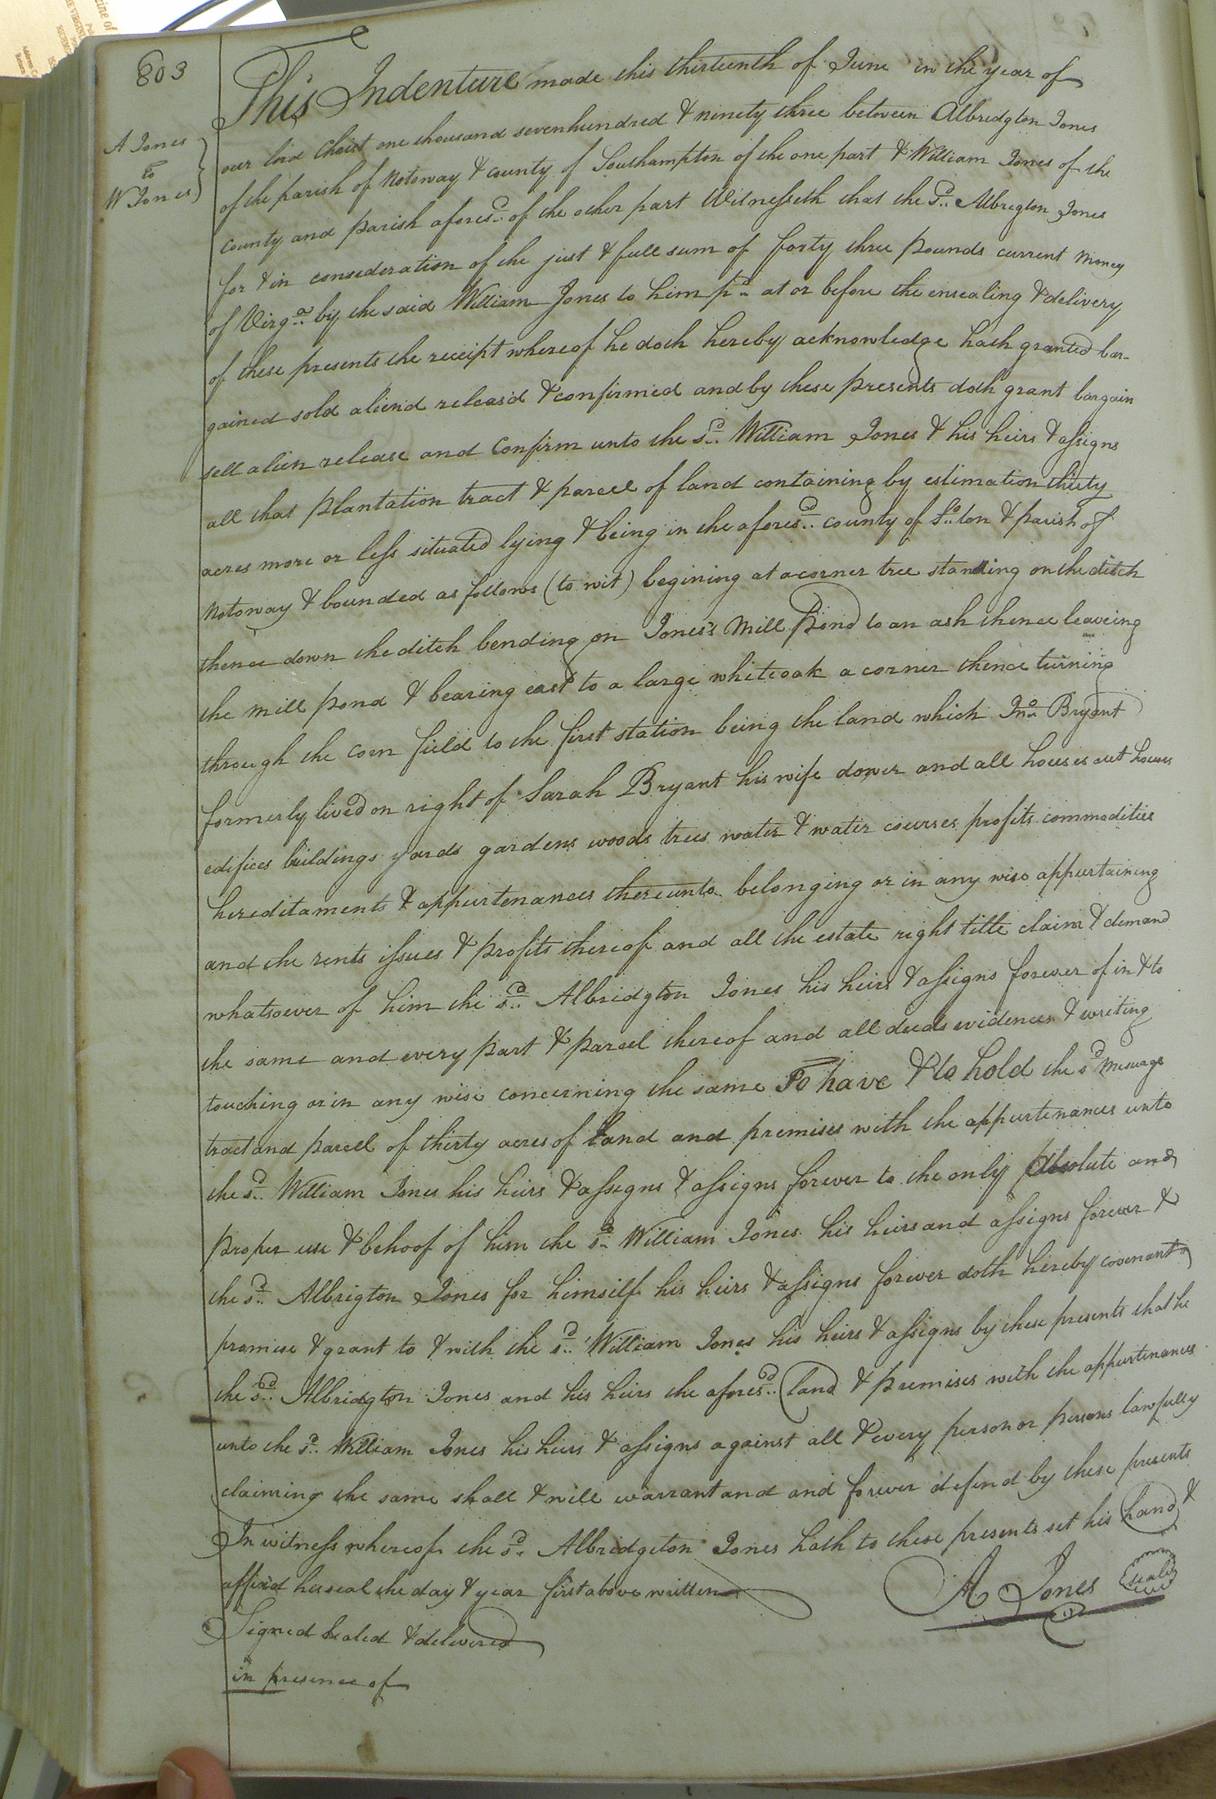 803
A Jones
to
W Jones
This Indenture made this thirteenth of June in the year of
our lord Christ one thousand sevenhundred & ninety three between Albridgton Jones
of the parish of Notoway & county of Southampton of the one part & William Jones of the
county and parish aforesd. of the other part Witnesseth that the sd. Albregton Jones
for & in consideration of the just & full sum of forty three pounds current money
of Virga. by the said William Jones to him pd. at or before the ensealing & delivery
of these presents the receipt whereof he doth hereby acknowledge hath granted bar-
gained sold aliend releasd & confirmed and by these presents doth grant bargain
sell alien release and Confirm unto the sd. William Jones & his heirs & assigns
all that plantation tract & parcel of land containing by estimation thirty
acres more or less situated lying & being in the aforesd. county of So.ton & parish of
Notoway & bounded as follows (to wit) begining at a corner tree standing on the ditch
thence down the ditch bending on Jones's Mill Pond to an ash thence leaveing
the mill pond & bearing east to a large whiteoak a corner thence turning
through the corn field to the first station being the land which Jno. Bryant
formerly lived on right of Sarah Bryant his wife dower and all houses out houses
edifices buildings yards gardens woods trees water & water courses profits commodities
hereditaments & appurtenances thereunto belonging or in any wise appurtaining
and the rents issues & profits thereof and all the estate right title claim & demand
whatsoever of him the sd. Albridgton Jones his heirs & assigns forever of in & to
the same and every part & parcel thereof and all deeds evidences & writing
touching or in any wise concerning the same To have & to hold the sd Mesuage
tract and parcell of thirty acres of Land and premises with the appurtenances unto
the sd. William Jones his heirs & assigns & assigns forever to the only Absolute and
proper use & behoof of him the sd. William Jones his heirs and assigns forever &
the sd. Albrigton Jones for himself his heirs & assigns forever doth hereby covenant
promise & grant to & with the sd. William Jones his heirs & assigns by these presents that he
the sd. Albridgton Jones and his heirs the aforesd. land & premises with the appurtenances
unto the sd. William Jones his heirs & assigns against all & every person or persons lawfully
claiming the same shall & will warrant and and forever defend by these presents
In witness whereof the sd. Albridgeton Jones hath to these presents set his hand &
affixd his seal the day & year first above written
A Jones seal
Signed Sealed & delivered
in presence of